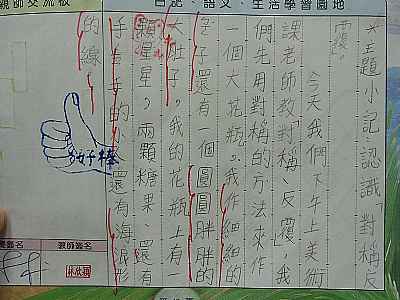 日記、語文、生活學習園地
親師交流板
※主題小記:認識「對稱反
覆」。
今天我們下午上美術
課老師教「對稱、反覆」,我
們先用對稱的方法來作
一個大花瓶。我作細細的
子還有一個圓圓胖胖的
大肚子,我的花瓶上有一
顆星星,兩顆糖果、還有
手牽手的、還有海浪形
的線。
好棒
教師簽名